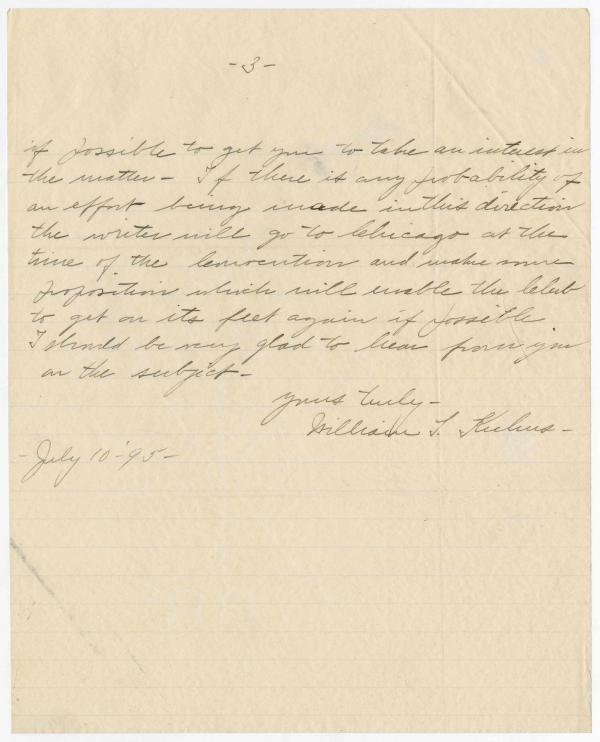 - 3 -
if possible to get you to take an interest in
the matter - If there is any probability of
an effort being made in this direction
the writer will go to Chicago at the
time of the Convocation and make some
proposition which will enable the Club
to get on its feet again if possible
I should be very glad to hear from you
on the subject -
Yours truly -
William S.
- July 10 - 95 -